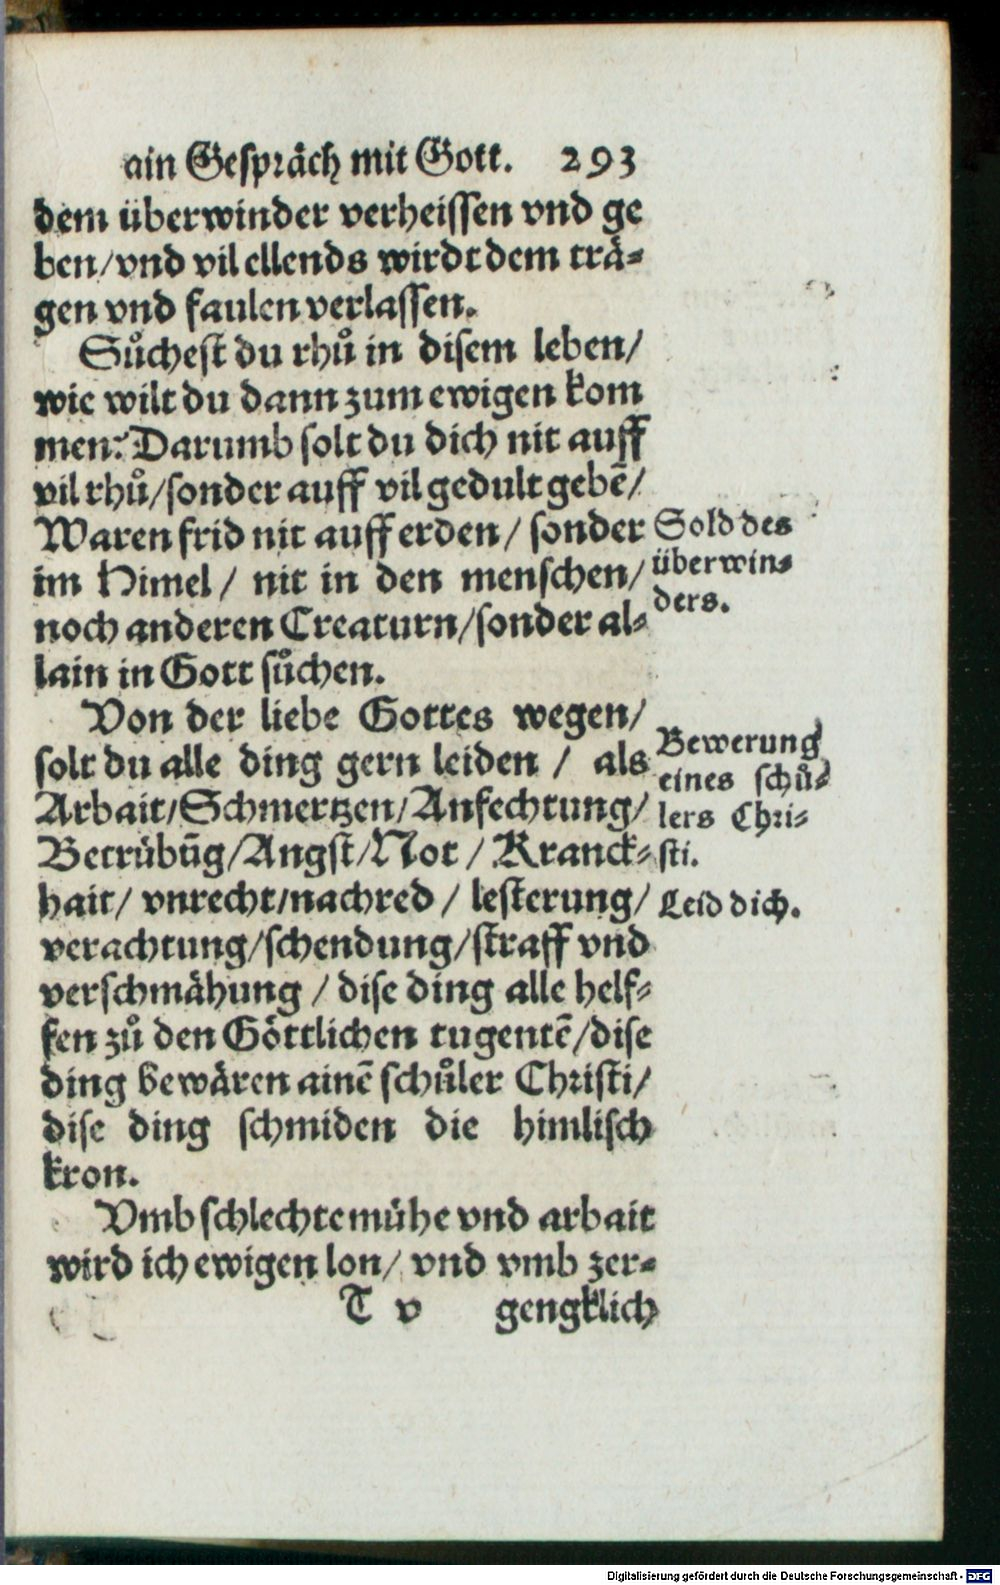 ain Gespräch mit Gott. 293
dem überwinder verheissen vnd ge
ben/vnd vil ellends wirdt dem trä⸗
gen vnd faulen verlassen.
Sůchest du rhů in disem leben/
wie wilt du dann zum ewigen kom
men? Darumb solt du dich nit auff
vil rhů/sonder auff vil gedult gebẽ/
Waren frid nit auff erden/ sonder
im Himel/ nit in den menschen/
noch anderen Creaturn/sonder al⸗
lain in Gott sůchen.
Sold des
überwin⸗
ders.
Von der liebe Gottes wegen/
solt du alle ding gern leiden / als
Arbait/Schmertzen/Anfechtung/
Betrübũg/Angst/Not / Kranck⸗
hait/ vnrecht/nachred / lesterung/
verachtung/schendung/straff vnd
verschmähung / dise ding alle helf⸗
fen zů den Göttlichen tugentẽ/dise
ding bewären ainẽ schůler Christi/
dise ding schmiden die himlisch
kron.
Bewerung
eines schů⸗
lers Chri⸗
sti.
Leid dich.
Vmb schlechte mühe vnd arbait
wird ich ewigen lon/ vnd vmb zer⸗
T v gengklich
Digitalisierung gefördert durch die Deutsche Forschungsgemeinschaft - DFG